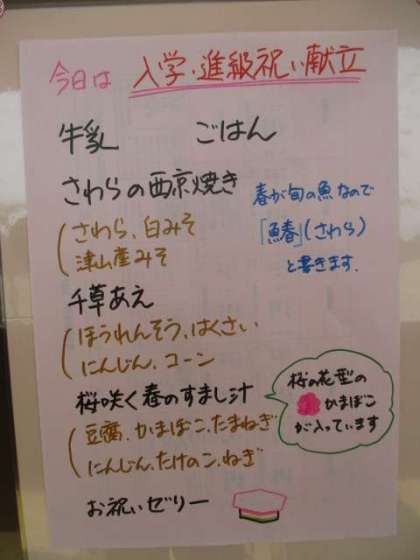 今日は 入学・進級祝い献立
牛乳 ごはん
さわらの西京焼き
さわら、白みそ
津山産みそ
春が旬の魚なので
「鰆」(さわら)
と書きます。
千草あえ
ほうれんそう、はくさい
にんじん、コーン
桜咲く春のすまし汁
豆腐、かまぼこ、たまねぎ
にんじん、たけのこ、ねぎ
桜の花型の
かまぼこ
が入っています
お祝いゼリー